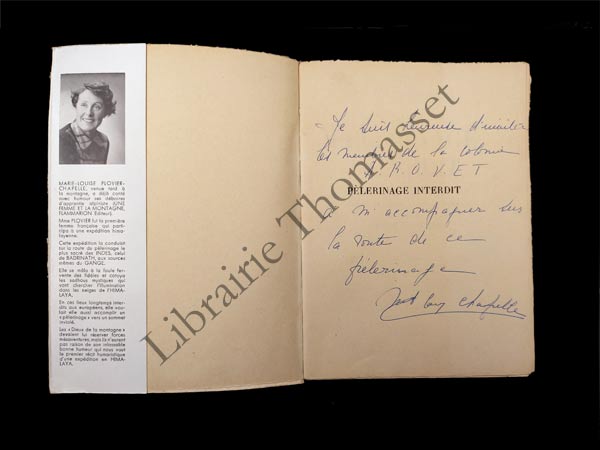 MARIE-LOUISE PLOVIER-
CHAPELLE, venue tard à
la montagne, a déjà conté
avec humour ses déboires
d'apprentie alpiniste (UNE
FEMME ET LA MONTAGNE,
FLAMMARION Editeur).
Mme PLOVIER fut la première
femme française qui parti-
cipa à une expédition hima-
layenne.
Cette expédition la conduisit
sur la route du pèlerinage le
plus sacré des INDES, celui
de BADRINATH, aux sources
mêmes du GANGE.
Elle se mêla à la foule fer-
vente des fidèles et cotoya
les sadhous mystiques qui
vont chercher l'illumination
dans les neiges de l'HIMA-
LAYA.
En ces lieux longtemps inter-
dits aux européens, elle vou-
lait elle aussi accomplir un
« pèlerinage » vers un sommet
inviolé.
Les « Dieux de la montagne »
devaient lui réserver forces
mésaventures, mais ils n'eurent
pas raison de son inlassable
bonne humeur qui nous vaut
le premier récit humoristique
d'une expédition en HIMA-
LAYA.
Je suis heureuse d'inviter
les membres de la colonie
R. O. V. E T
PÈLERINAGE INTERDIT
à m'accompagner sur
la route de ce
pèlerinage
Chapelle
Librairie Thomasset